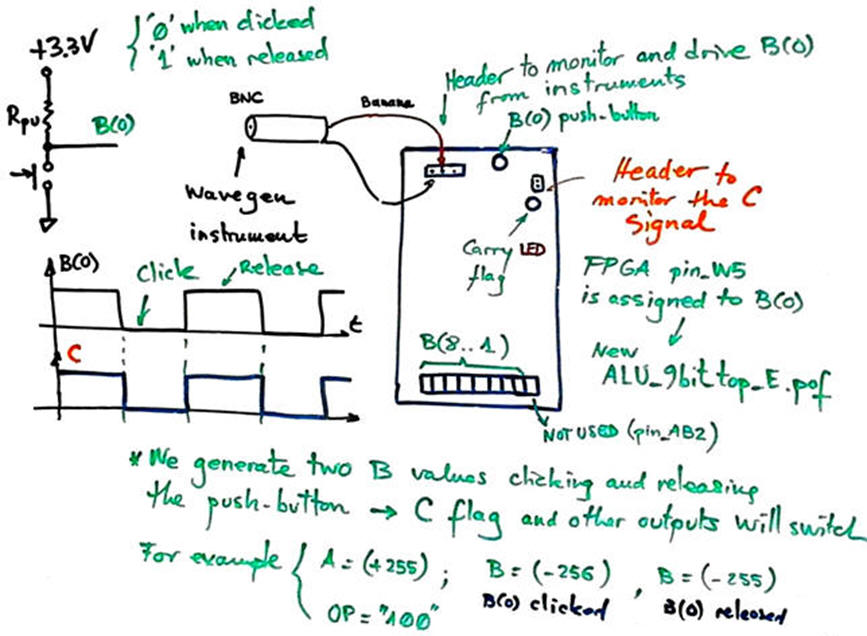 '0' when clicked
'1' when released
+3.3V
Rpu
B(0)
BNC
Banana
Header to monitor and drive B(0)
from instruments
B(0) push-button
Wavegen
instrument
Header to
monitor the C
Signal
Carry LED
flag
B(0)
Click
Release
t
C
FPGA pin_W5
is assigned to B(0)
New
ALU_9bit top_E.pof
B(8..1)
NOT USED (pin_AB2)
* We generate two B values clicking and releasing
the push-button → C flag and other outputs will switch
For example { A = (+255) ; B = (-256) , B = (-255)
OP = "100" B(0) clicked B(0) released